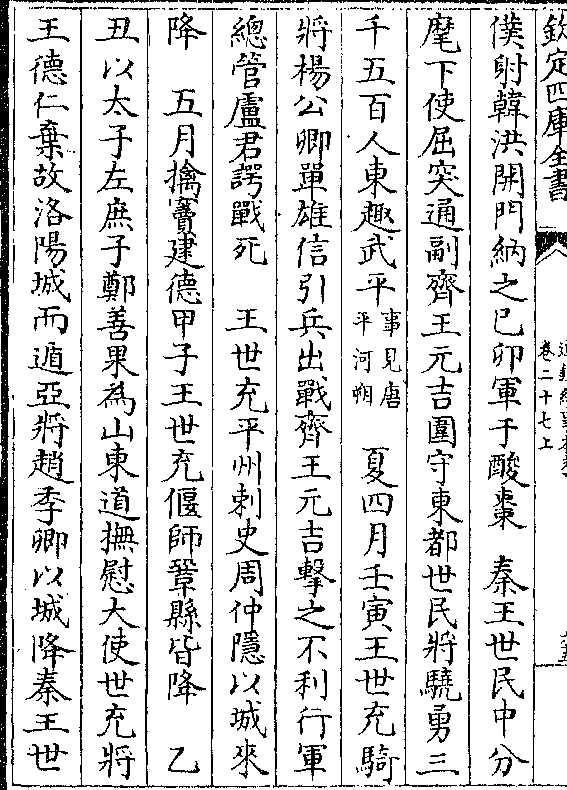 欽定四庫全書
卷二十七上
僕射韓洪開門納之己卯軍于酸棗　秦王世民中分
麾下使屈突通副齊王元吉圍守東都世民將驍勇三
千五百人東趣武牢事見唐平河朔　夏四月壬寅王世充騎
將楊公卿單雄信引兵出戰齊王元吉擊之不利行軍
總管盧君諤戰死　王世充平州刺史周仲隱以城來
降　五月擒竇建德甲子王世充偃師鞏縣皆降　乙
丑以太子左庶子鄭善果為山東道撫慰大使世充將
王德仁棄故洛陽城而遁亞將趙季卿以城降秦王世